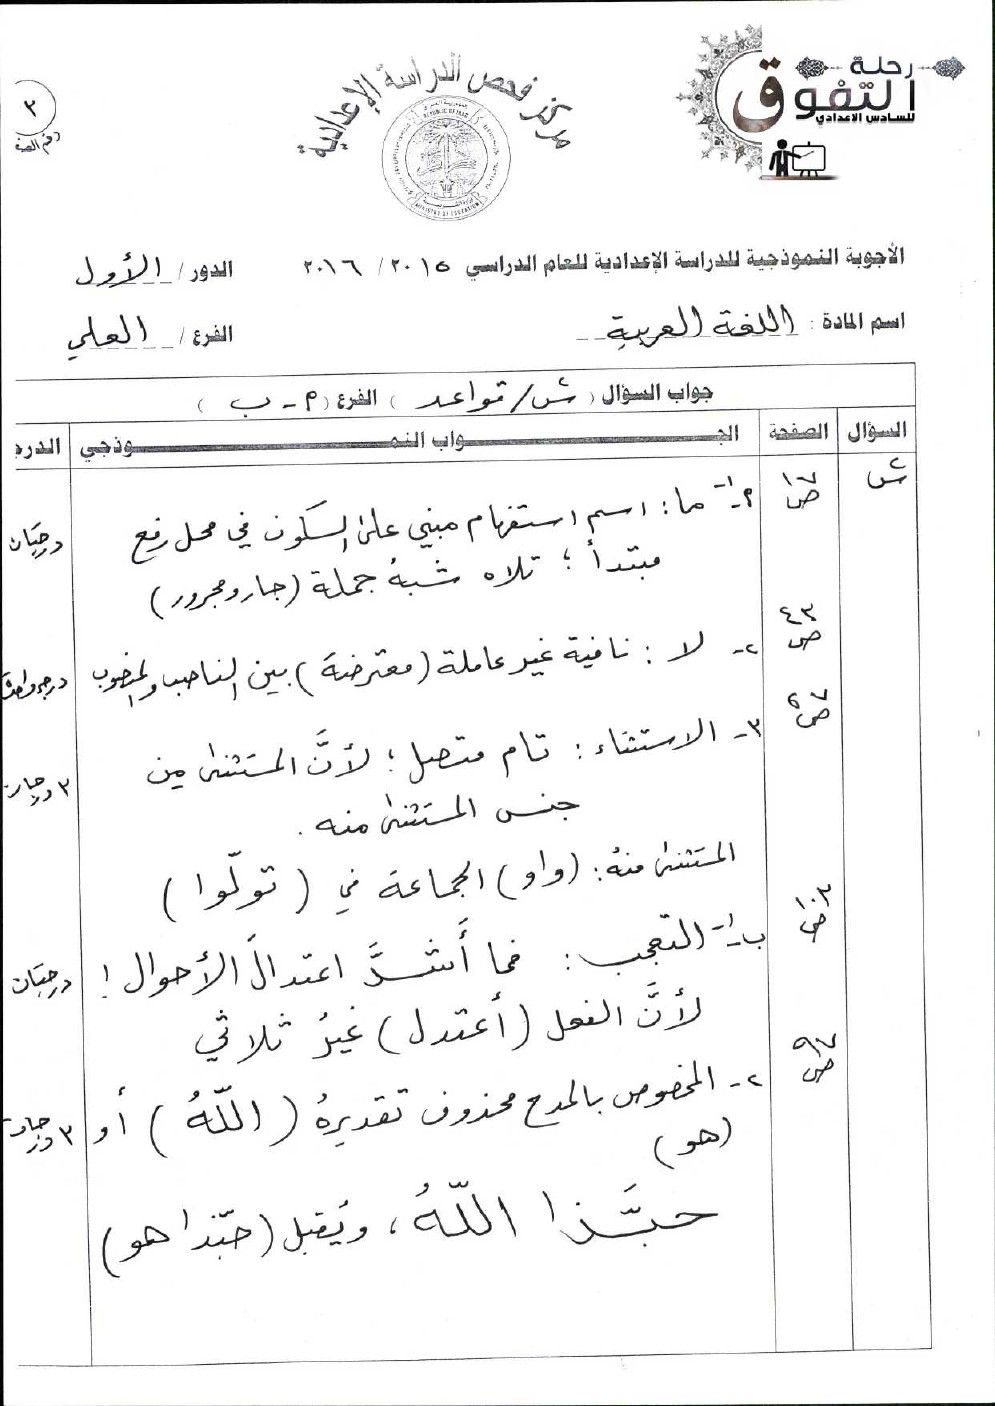 رحلة
التفوق
للسادس الاعدادي
مركز فحص الدراسة الإعدادية
REPUBLIC OF IRAQ
MINISTRY OF EDUCATION
٣
رقم الصفحة
الأجوبة النموذجية للدراسة الإعدادية للعام الدراسي ٢٠١٥ / ٢٠١٦ الدور / الأول
اسم المادة : اللغة العربية الفرع / العلمي
جواب السؤال ( ش / قواعد ) الفرع ( م - ب )
السؤال الصفحة الجواب النموذجي الدرجة
ش ص ١٧ م - ١ - ما : اسم استفهام مبني على السكون في محل رفع درجتان
مبتدأ ؛ تلاه شبهُ جملة (جار ومجرور)
ص ٤٣ ٢- لا : نافية غير عاملة (معترضة) بين الناصب والمنصوب درجة واحدة
ص ٦٧ ٣- الاستثناء : تام متصل ؛ لأنَّ المستثنى من ٣ درجات
جنس المستثنى منه .
المستثنى منهُ : (واو) الجماعة في ( تولّوا )
ص ١٠٣ ب - ١ - التعجب : فما أَشدَّ اعتدالَ الأحوال ! درجتان
لأنَّ الفعل (أعتدل) غيرُ ثلاثي
ص ٩٧ ٢- المخصوص بالمدح محذوف تقديرهُ ( اللّهُ ) أو ٣ درجات
(هو)
حبَّذا اللّهُ ، ويُقبل (حبّذا هو)